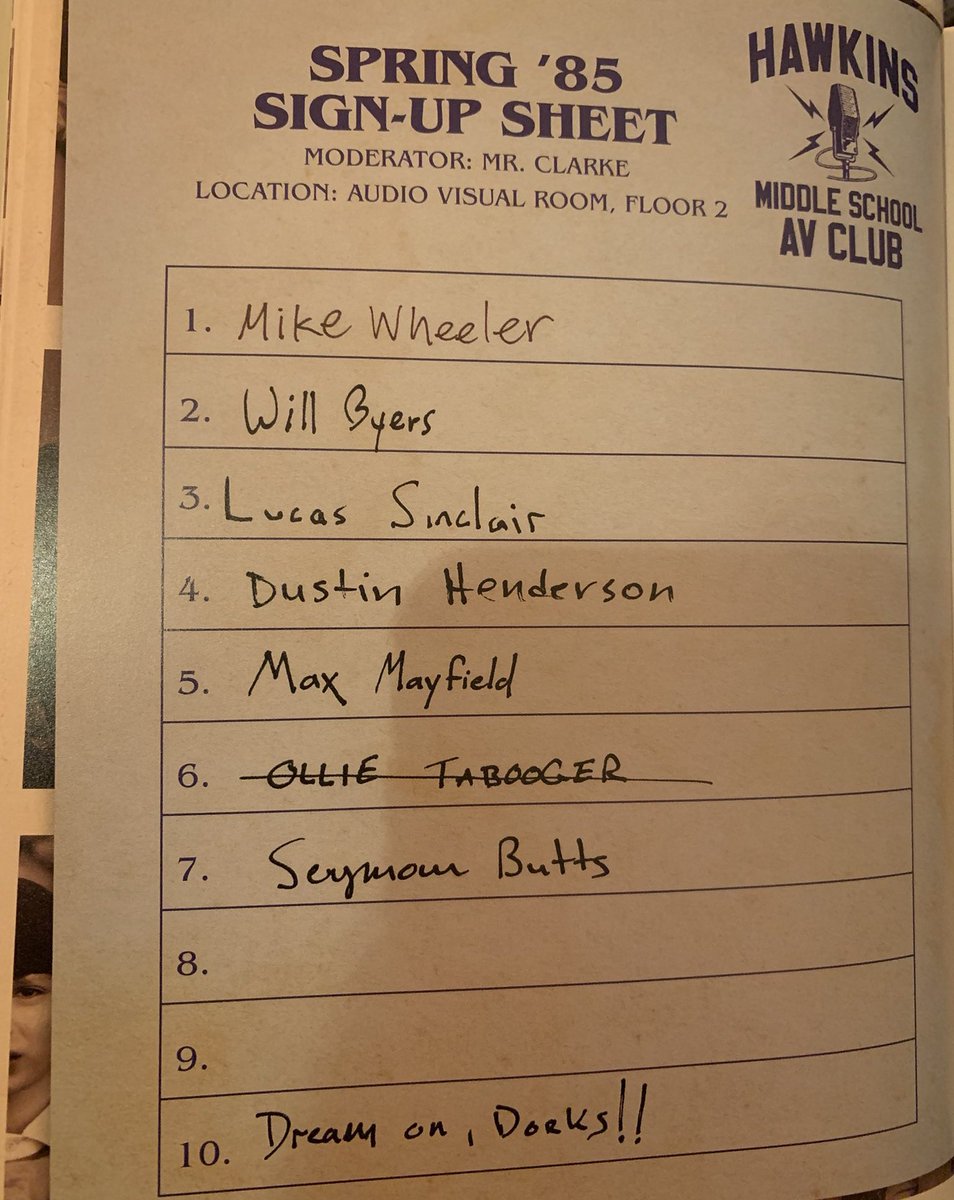 SPRING '85
SIGN-UP SHEET
MODERATOR: MR. CLARKE
LOCATION: AUDIO VISUAL ROOM, FLOOR 2
HAWKINS
MIDDLE SCHOOL
AV CLUB
1. Mike Wheeler
2. Will Byers
3. Lucas Sinclair
4. Dustin Henderson
5. Max Mayfield
6. OLLIE TABOOGER
7. Seymour Butts
8.
9.
10. Dream on, Dorks!!